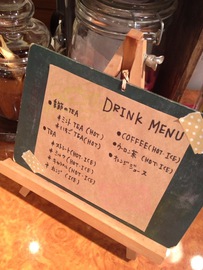 DRINK MENU
●季節のTEA
＊ミントTEA (HOT)
＊いちごTEA (HOT)
●TEA
＊ストレート (HOT・ICE)
＊ミルク (HOT・ICE)
(HOT・ICE)
(ICE)
●COFFEE (HOT・ICE)
●ウーロン茶 (HOT・ICE)
●オレンジジュース